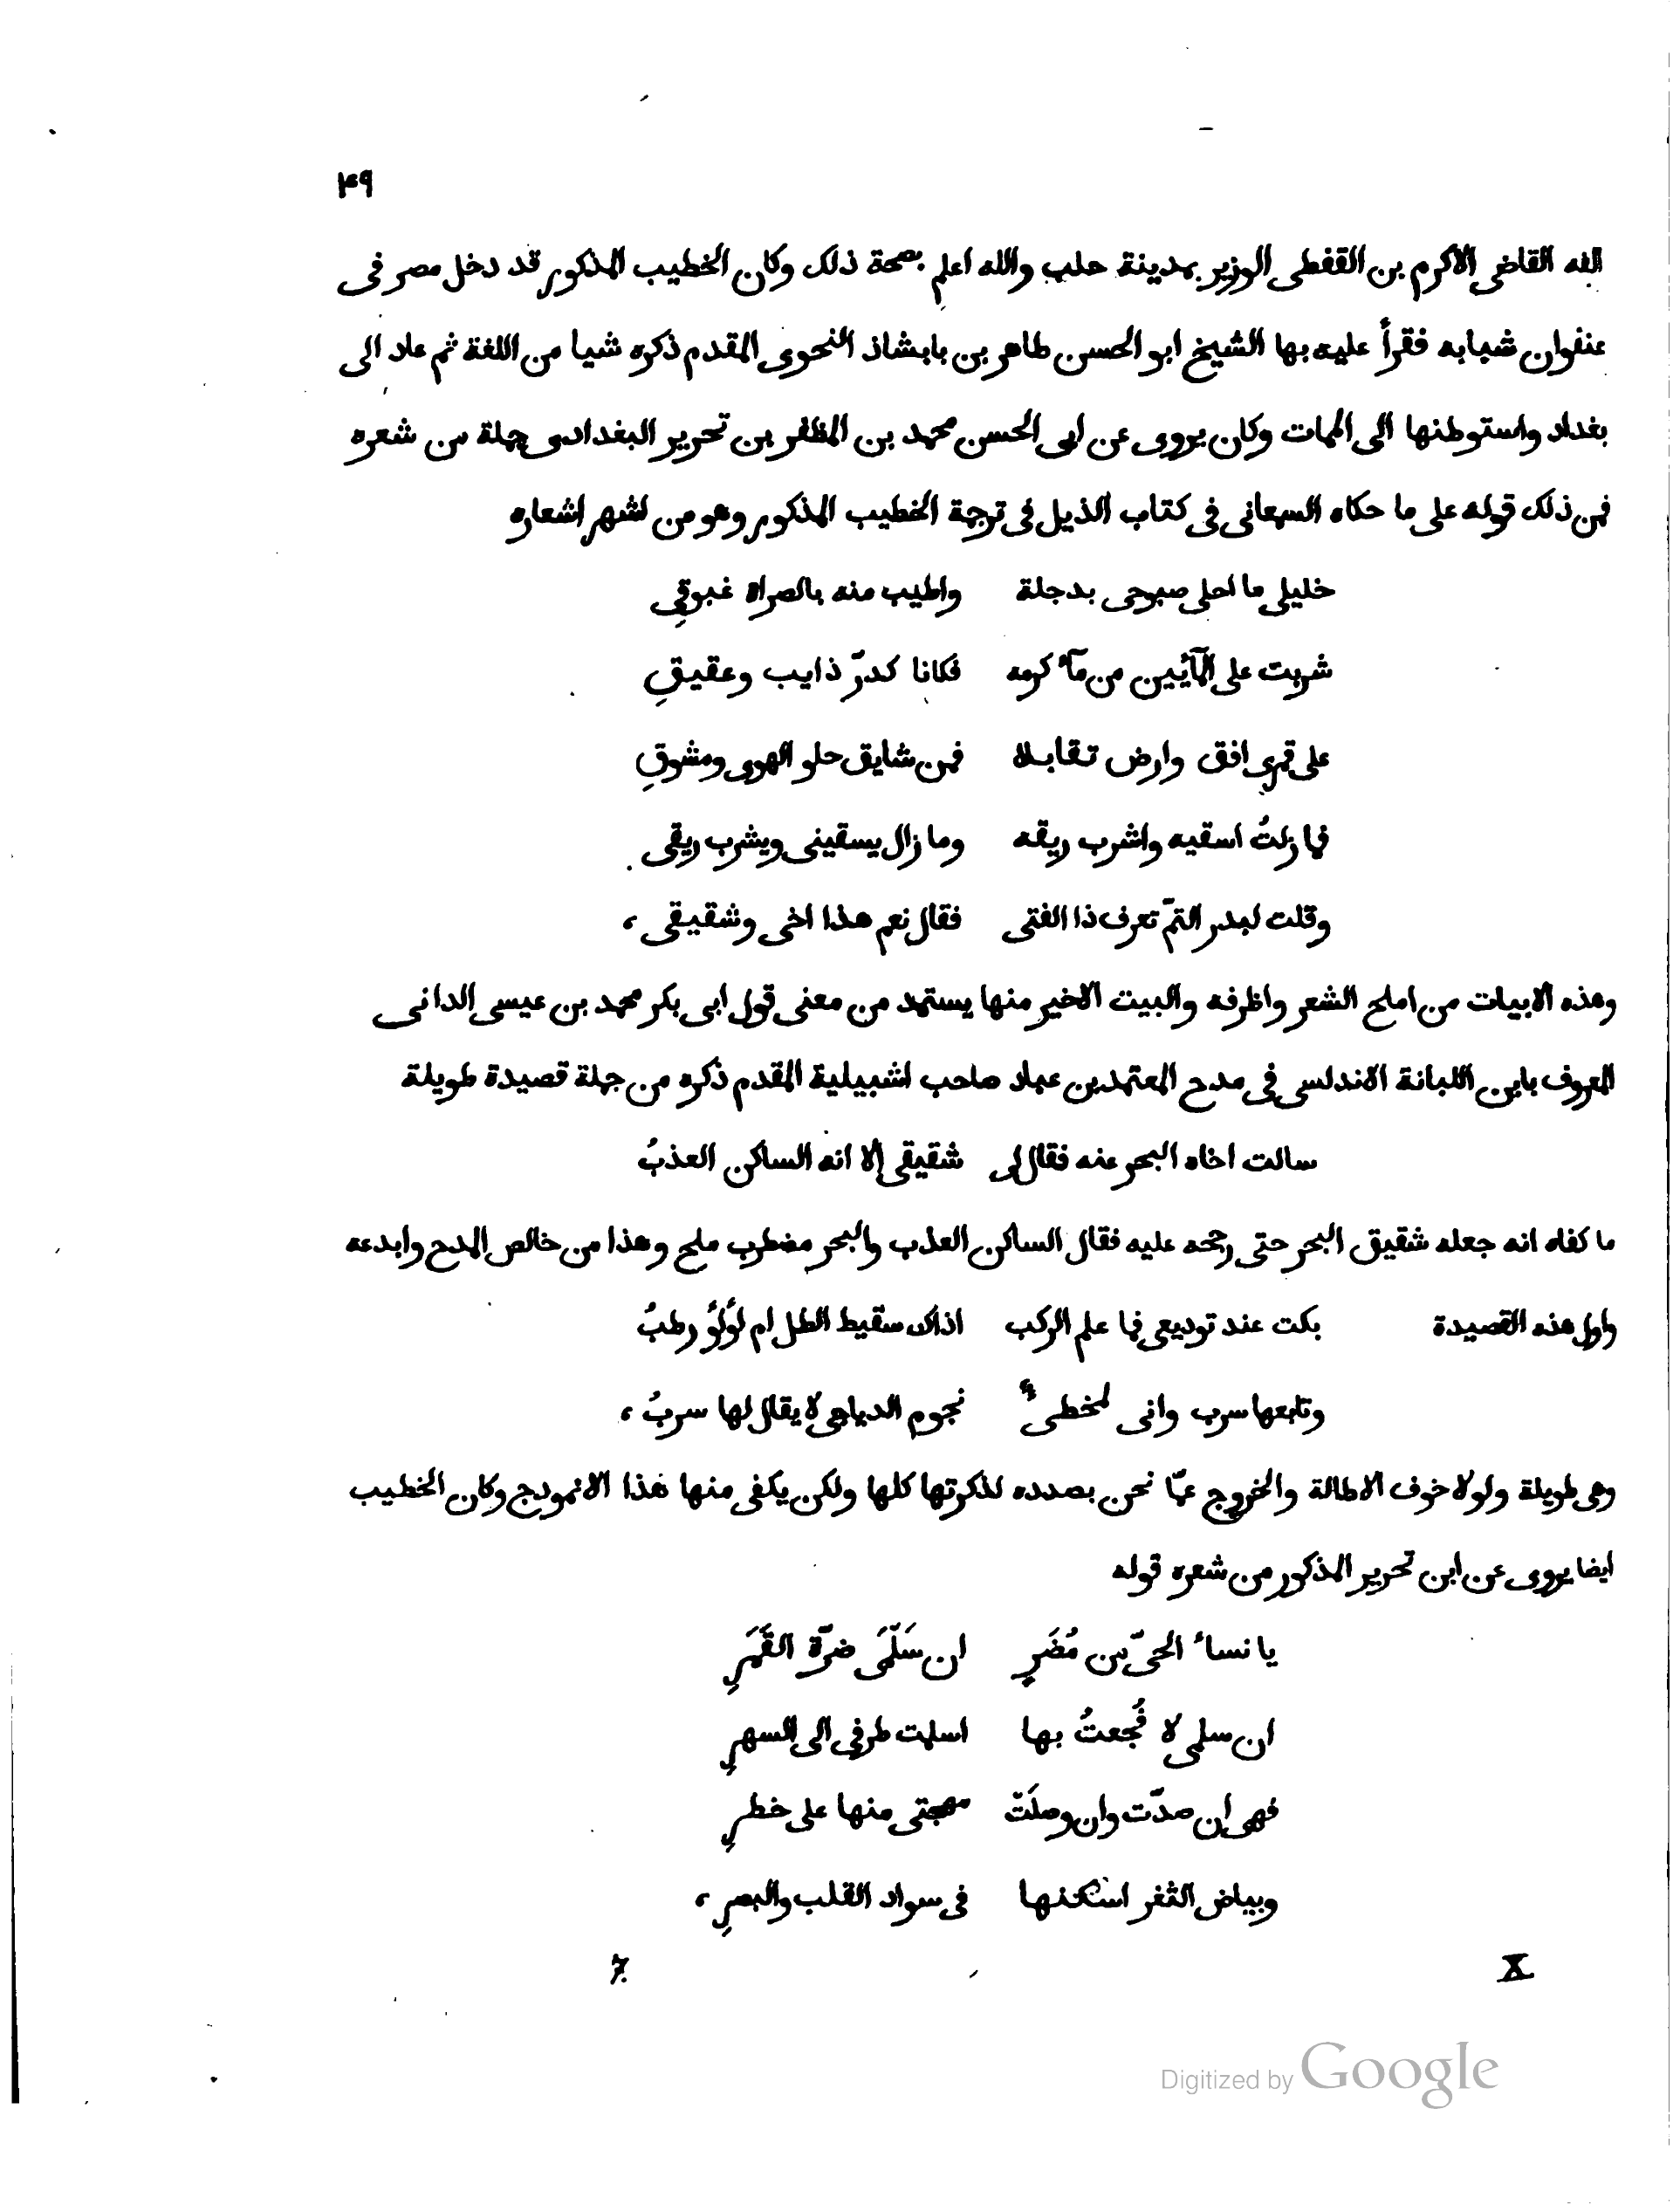 ۴۹
الفه القاضى الاكرم بن القفطى الوزير بمدينة حلب والله اعلم بصحة ذلك وكان الخطيب المذكور قد دخل مصر فى
عنفوان شبابه فقرأ عليه بها الشيخ ابو الحسن طاهر بن بابشاذ النحوى المقدم ذكره شيا من اللغة ثم عاد الى
بغداد واستوطنها الى الممات وكان يروى عن ابى الحسن محمد بن المظفر بن تحرير البغدادى جملة من شعره
فمن ذلك قوله على ما حكاه السمعانى فى كتاب الذيل فى ترجمة الخطيب المذكور وهو من اشهر اشعاره
خليلى ما احلى صبوحى بدجلة واطيب منه بالصراة غبوقِى
شربت على المآئين من مآء كرمه فكانا كدرّ ذايب وعقيقِ
على قمرى افق وارض تقابلا فمن شايق حلو الهوى ومشوقِ
فما زلتُ اسقيه واشرب ريقه وما زال يسقينى ويشرب ريقى
وقلت لبدر التمّ تعرف ذا الفتى فقال نعم هذا اخى وشقيقى،
وهذه الابيات من املح الشعر واظرفه والبيت الاخير منها يستمد من معنى قول ابى بكر محمد بن عيسى الدانى
المعروف بابن اللبانة الاندلسى فى مدح المعتمد بن عباد صاحب اشبيلية المقدم ذكره من جملة قصيدة طويلة
سالت اخاه البحر عنه فقال لى شقيقى إلا انه الساكن العذبُ
ما كفاه انه جعله شقيق البحر حتى رجحه عليه فقال الساكن العذب والبحر مضطرب ملح وهذا من خالص المدح وابدعه
واول هذه القصيدة بكت عند توديعى فما علم الركب اذاك سقيط الطل ام لؤلؤ رطبُ
وتابعها سرب وانى لمخطىٌ نجوم الدياجى لا يقال لها سربُ،
وهى طويلة ولولا خوف الاطالة والخروج عمّا نحن بصدده لذكرتها كلها ولكن يكفى منها هذا الانموذج وكان الخطيب
ايضا يروى عن ابن تحرير المذكور من شعره قوله
يا نساء الحىّ من مُضَرٍ ان سَلْمَى ضرّة القَمَرِ
ان سلمى لا فُجعتُ بها اسلمت طرفى الى السهرِ
فهى ان صدّت وان وصلَتْ مهجتى منها على خطرِ
وبياض الثغر اسكنها فى سواد القلب والبصرِ،
X 7.
Digitized by Google